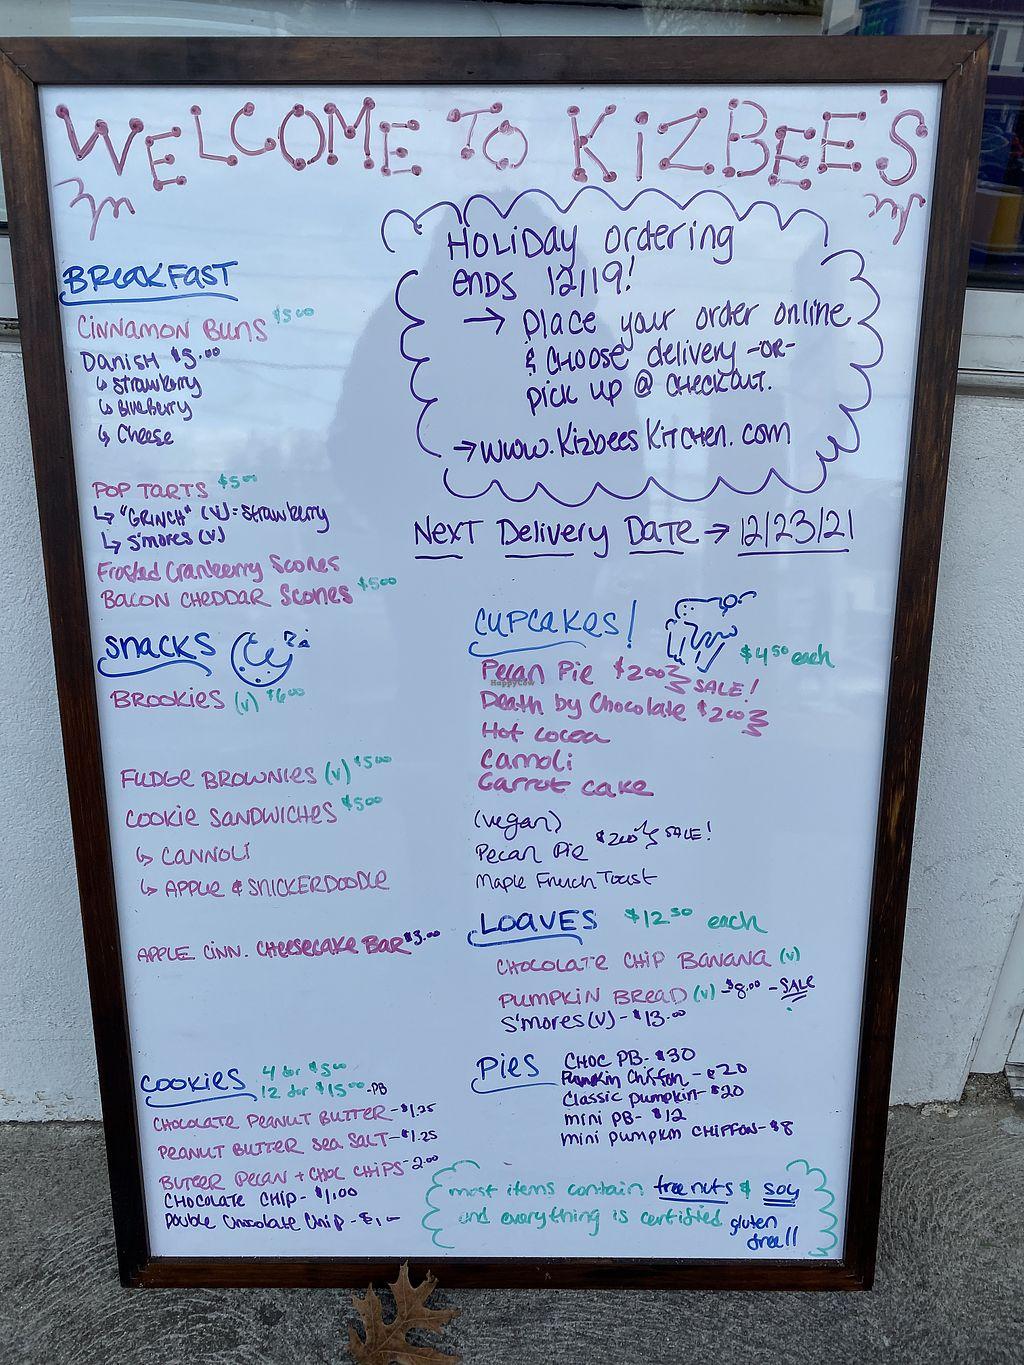 WELCOME TO KiZBEE'S
BREAKFAST
CINNAMON BUNS $5.00
DANISH $5.00
↳ Strawberry
↳ BlueBerry
↳ Cheese
POP TARTS $5.00
↳ "GRINCH" (V) = Strawberry
↳ S'mores (V)
Frosted Cranberry Scones
BACON CHEDDAR Scones $5.00
SNACKS
BROOKIES (V) $6.00
FUDGE BROWNIES (V) $5.00
COOKIE SANDWICHES $5.00
↳ CANNOLI
↳ APPLE & SNICKERDOODLE
APPLE CINN. CHEESECAKE BAR $3.00
COOKIES 4 for $5.00
12 for $15.00 -PB
CHOCOLATE PEANUT BUTTER - $1.25
PEANUT BUTTER SEA SALT - $1.25
BUTTER PECAN + CHOC CHIPS - 2.00
CHOCOLATE CHIP - $1.00
Double Chocolate Chip - $1-
HOLiDAY ordering
ENDS 12/19!
→ Place your order online
& CHOOSE delivery -OR-
pick up @ CHECKOUT.
→ www.KizbeesKitchen.com
Next Delivery Date → 12/23/21
CUPCAKES! $4.50 each
Pecan Pie $2.00 } SALE!
Death by Chocolate $2.00 }
Hot Cocoa
Cannoli
Carrot cake
(vegan)
Pecan Pie $2.00 } SALE!
Maple French Toast
LOAVES $12.50 each
CHOCOLATE CHIP BANANA (V)
PUMPKIN BREAD (V) - $8.00 - SALE
S'mores (V) - $13.00
PiES CHOC PB - $30
Pumpkin Chiffon - $20
Classic pumpkin - $20
mini PB - $12
mini pumpkin CHIFFON - $8
most items contain tree nuts & soy
and everything is certified gluten
free!!
HappyCow